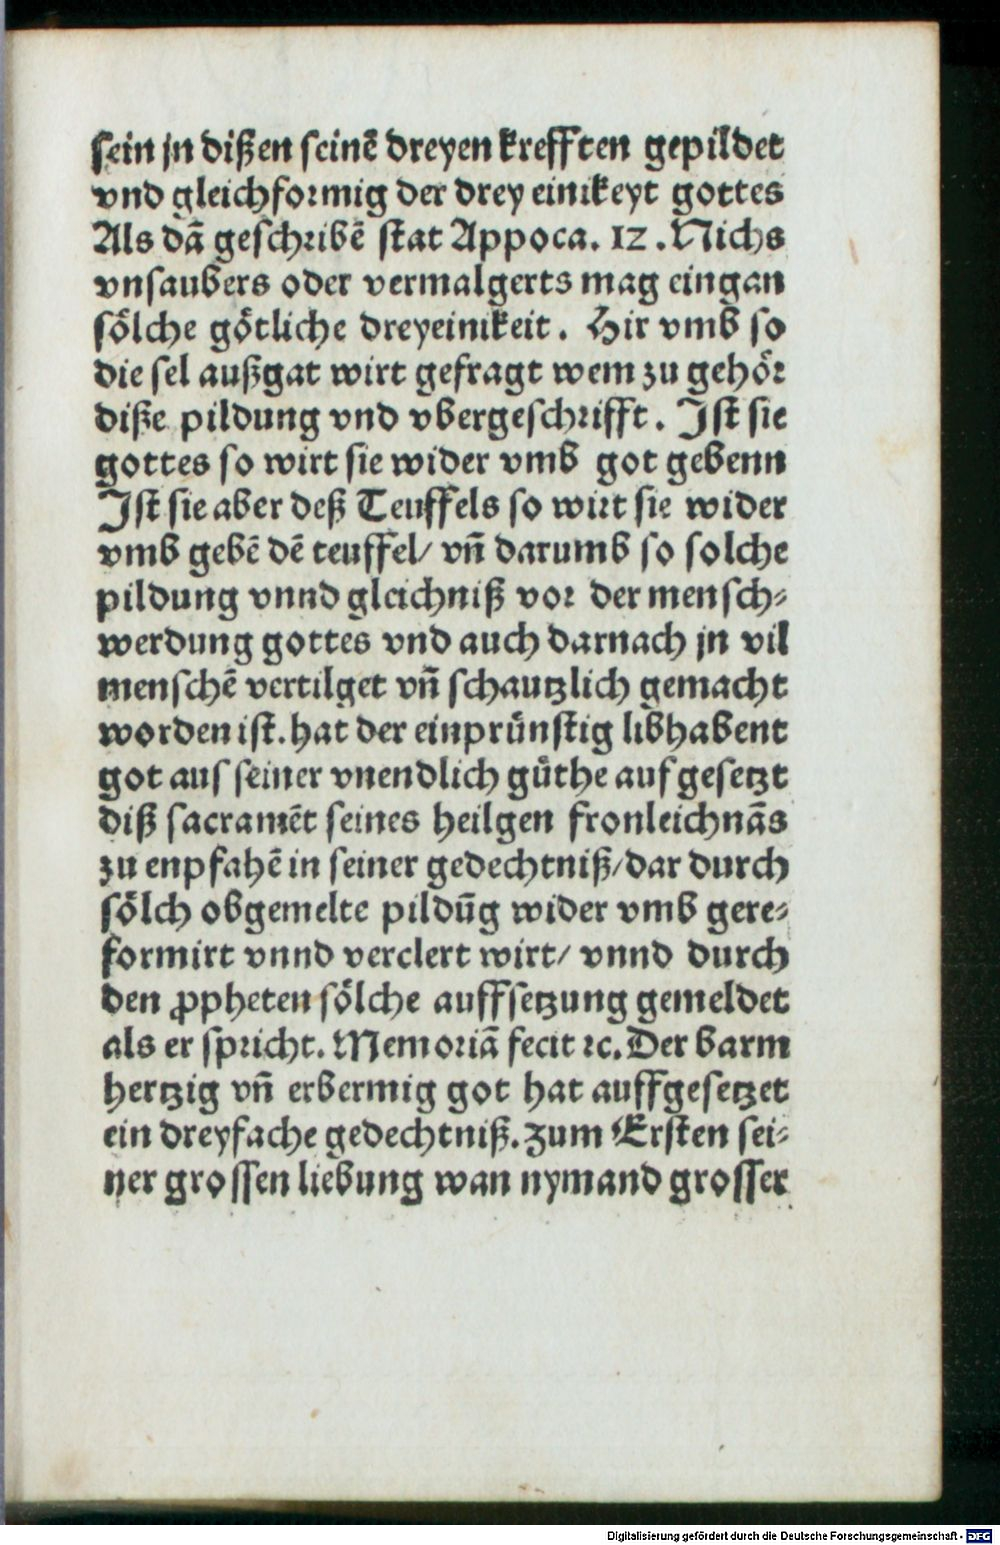 sein jn dißen seinē dreyen krefften gepildet
vnd gleichformig der drey einikeyt gottes
Als dā geschribē stat Appoca. 12. Nichs
vnsaubers oder vermalgerts mag eingan
sölche götliche dreyeinikeit. Hir vmb so
die sel außgat wirt gefragt wem zu gehör
diße pildung vnd vbergeschrifft. Ist sie
gottes so wirt sie wider vmb got gebenn
Ist sie aber deß Teuffels so wirt sie wider
vmb gebē dē teuffel/ vn̄ darumb so solche
pildung vnnd gleichniß vor der mensch⸗
werdung gottes vnd auch darnach jn vil
menschē vertilget vn̄ schautzlich gemacht
worden ist. hat der einprünstig libhabent
got aus seiner vnendlich güthe auf gesetzt
diß sacramēt seines heilgen fronleichnās
zu enpfahē in seiner gedechtniß/ dar durch
sölch obgemelte pildūg wider vmb gere⸗
formirt vnnd verclert wirt/ vnnd durch
den ꝓpheten sölche auffsetzung gemeldet
als er spricht. Memoriā fecit ꝛc. Der barm
hertzig vn̄ erbermig got hat auffgesetzet
ein dreyfache gedechtniß. Zum Ersten sei⸗
ner grossen liebung wan nymand grosser
Digitalisierung gefördert durch die Deutsche Forschungsgemeinschaft - DFG